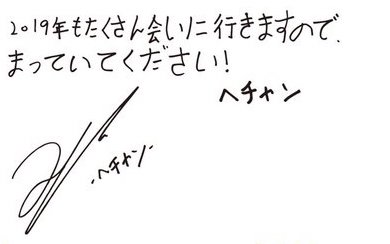 2019年もたくさん会いに行きますので、
まっていてください！
ヘチャン
・ヘチャン・